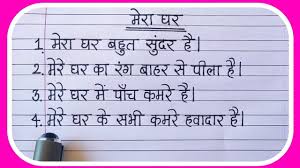 मेरा घर
1. मेरा घर बहुत सुंदर है।
2. मेरे घर का रंग बाहर से पीला है।
3. मेरे घर में पाँच कमरे है।
4. मेरे घर के सभी कमरे हवादार है।